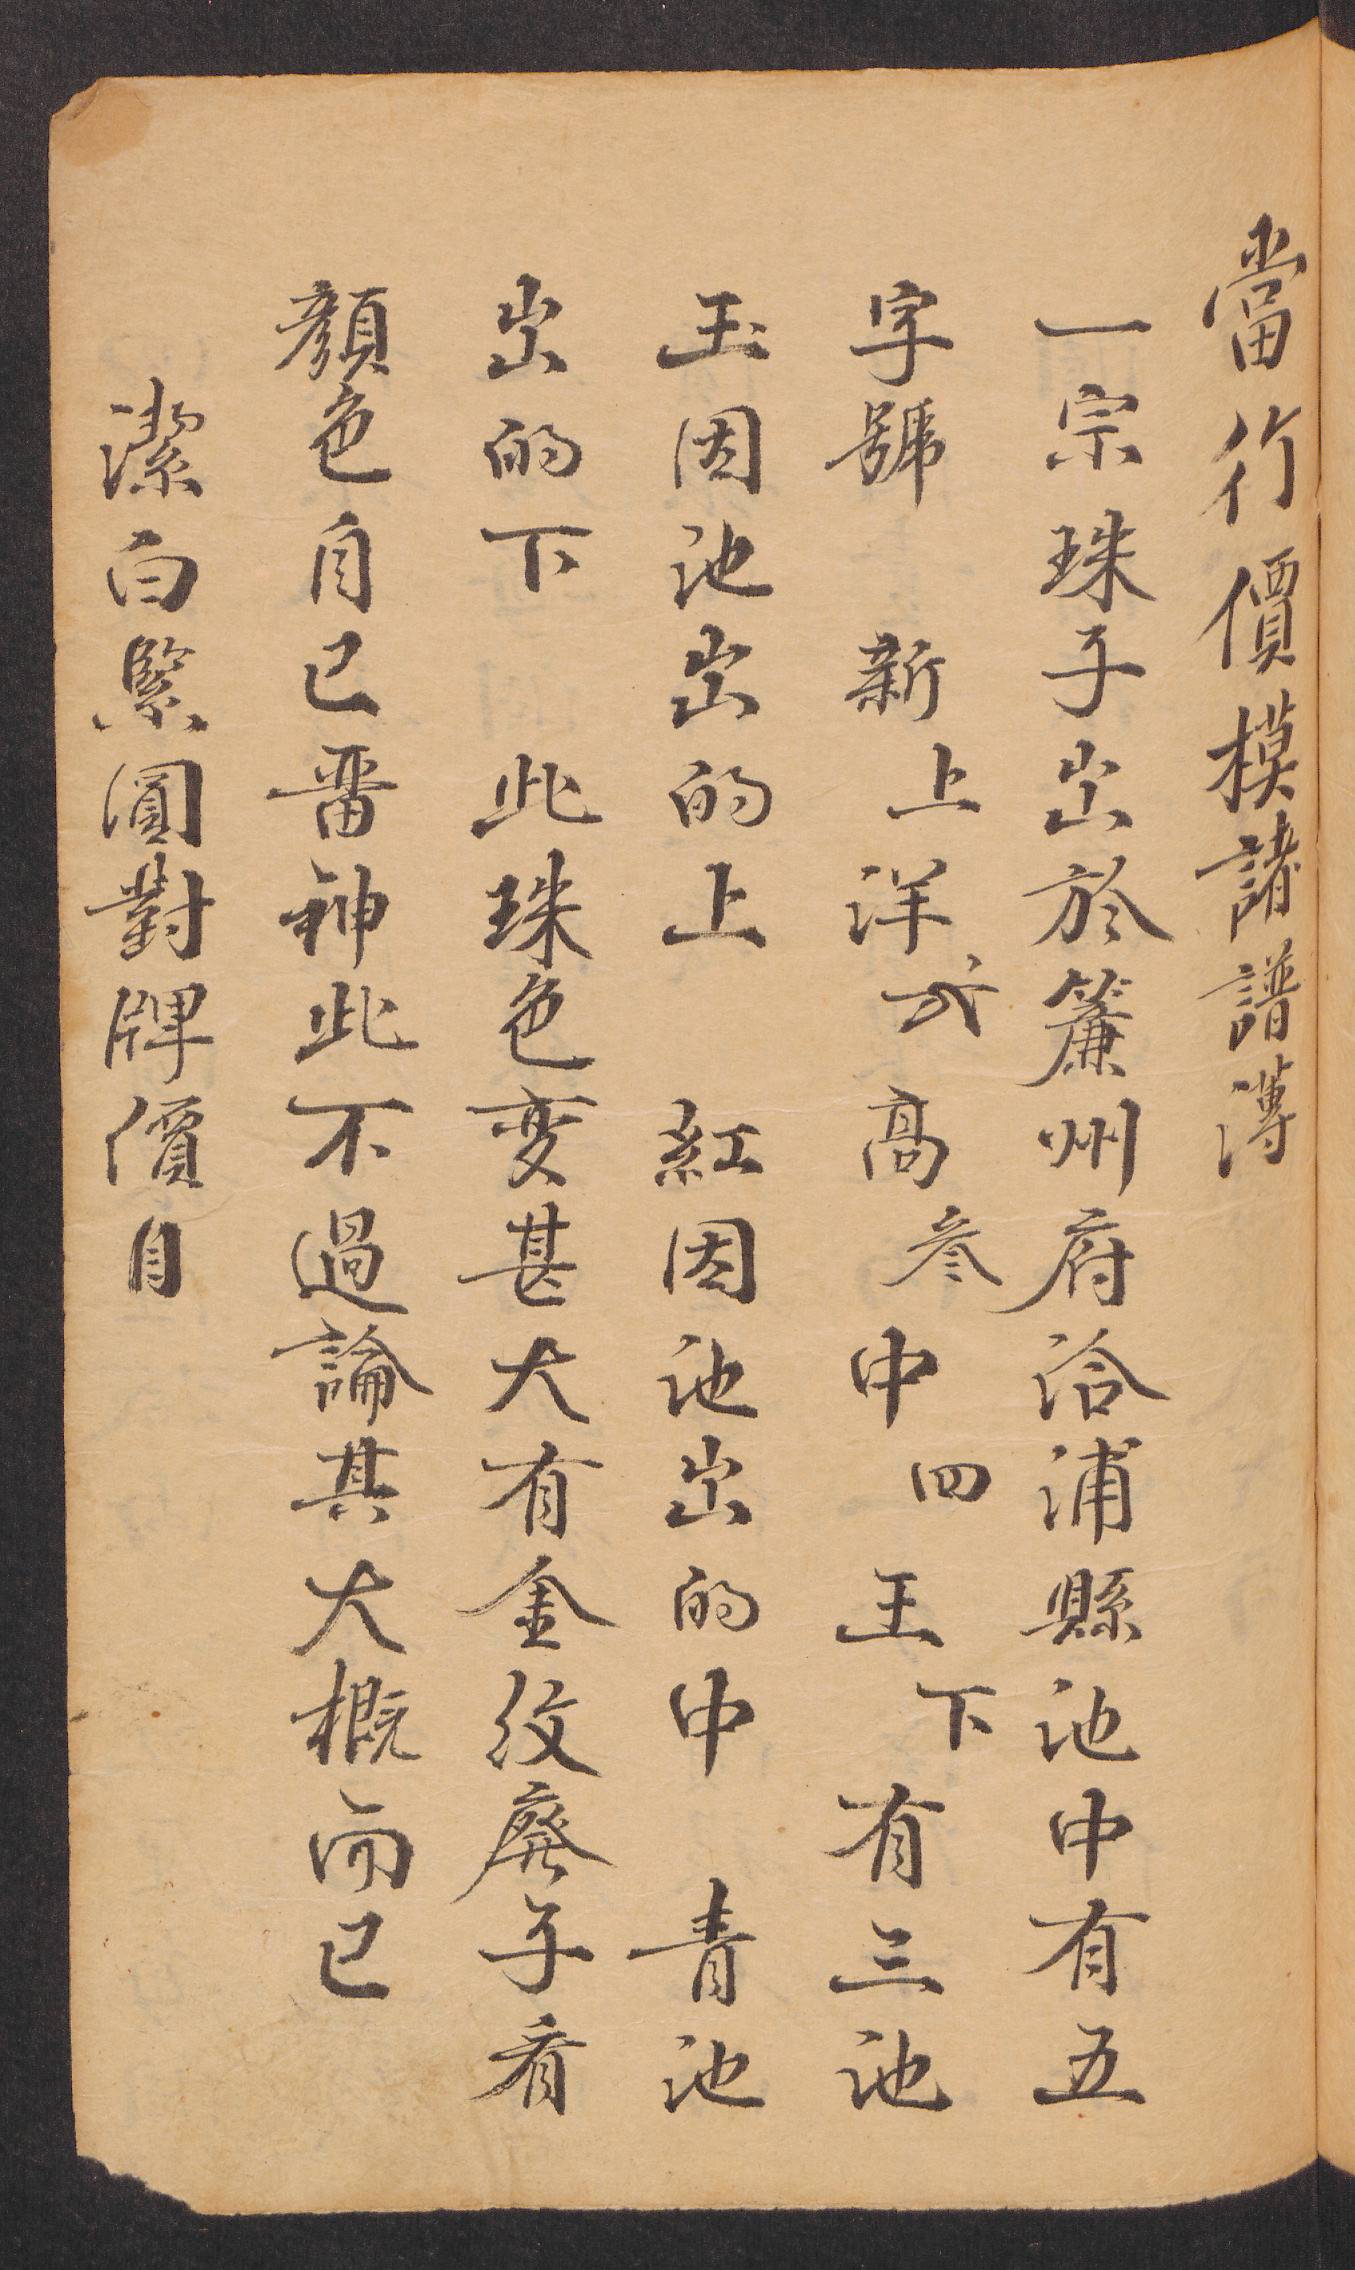 當行價模諸譜薄
一宗珠子出於簾州府洽浦縣池中有五
字號 新上洋弍 高叁中四王下有三池
玉因池出的上 紅因池出的中 青池
出的下 此珠色变甚大有金紋廢子看
顏色自已畨神此不過論其大概而已
潔白緊圓對牌價自